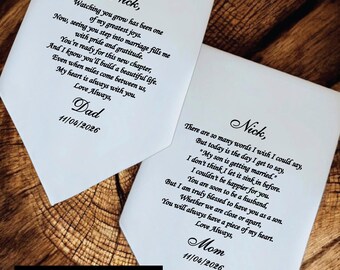 Nick,
Watching you grow has been one
of my greatest joys.
Now, seeing you step into marriage fills me
with pride and gratitude.
You're ready for this new chapter,
And I know you'll build a beautiful life.
Even when miles come between us,
My heart is always with you.
Love Always,
Dad
11/04/2026
Nick,
There are so many words I wish I could say,
But today is the day I get to say,
"My son is getting married."
I don't think I let it sink in before.
I couldn't be happier for you.
You are soon to be a husband,
But I am truly blessed to have you as a son.
Whether we are close or apart,
You will always have a piece of my heart.
Love Always,
Mom
11/04/2026